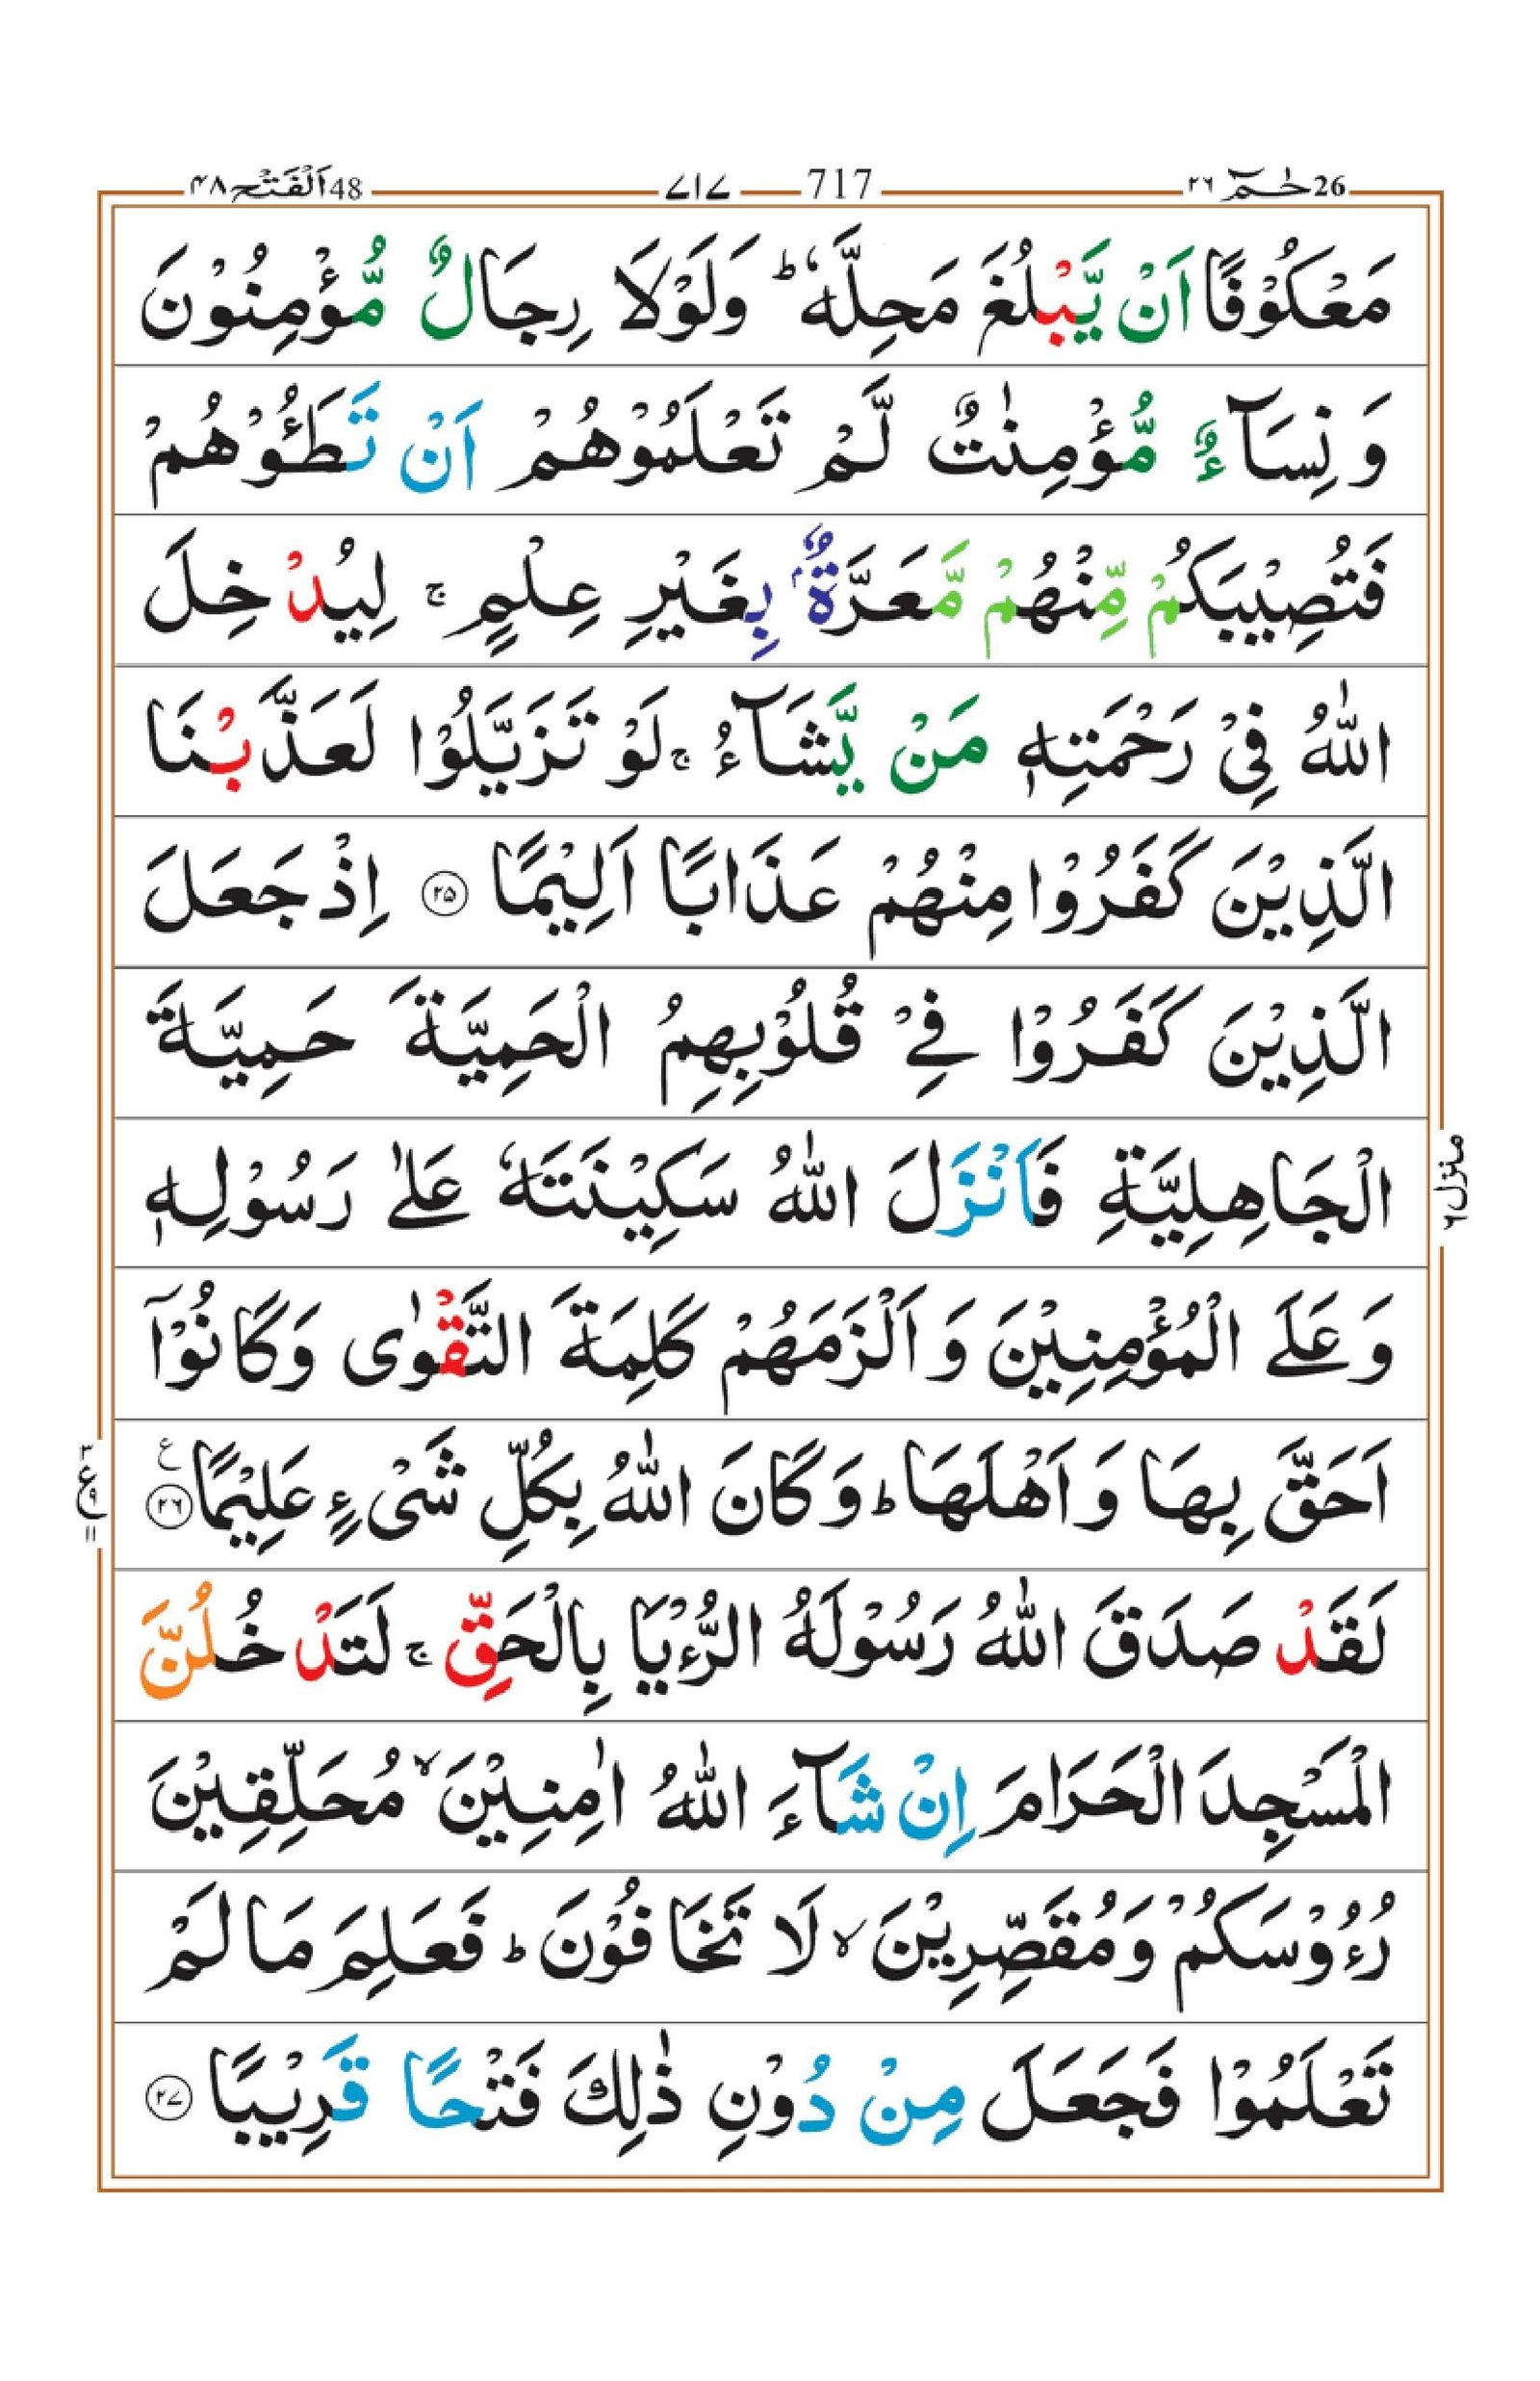 26 حٰمٓ ٢٦
717 ٧١٧
48 اَلْفَتْح ٤٨
مَعْكُوْفًا اَنْ يَّبْلُغَ مَحِلَّهٗ ؕ وَلَوْلَا رِجَالٌ مُّؤْمِنُوْنَ
وَ نِسَآءٌ مُّؤْمِنٰتٌ لَّمْ تَعْلَمُوْهُمْ اَنْ تَطَـُٔوْهُمْ
فَتُصِيْبَكُمْ مِّنْهُمْ مَّعَرَّةٌۢ بِغَيْرِ عِلْمٍ ۚ لِيُدْخِلَ
اللّٰهُ فِيْ رَحْمَتِهٖ مَنْ يَّشَآءُ ۚ لَوْ تَزَيَّلُوْا لَعَذَّبْنَا
الَّذِيْنَ كَفَرُوْا مِنْهُمْ عَذَابًا اَلِيْمًا ٢٥ اِذْ جَعَلَ
الَّذِيْنَ كَفَرُوْا فِيْ قُلُوْبِهِمُ الْحَمِيَّةَ حَمِيَّةَ
الْجَاهِلِيَّةِ فَاَنْزَلَ اللّٰهُ سَكِيْنَتَهٗ عَلٰى رَسُوْلِهٖ
وَ عَلَى الْمُؤْمِنِيْنَ وَ اَلْزَمَهُمْ كَلِمَةَ التَّقْوٰى وَ كَانُوْۤا
اَحَقَّ بِهَا وَ اَهْلَهَا ؕ وَ كَانَ اللّٰهُ بِكُلِّ شَيْءٍ عَلِيْمًا ٢٦ ع
لَقَدْ صَدَقَ اللّٰهُ رَسُوْلَهُ الرُّءْيَا بِالْحَقِّ ۚ لَتَدْخُلُنَّ
الْمَسْجِدَ الْحَرَامَ اِنْ شَآءَ اللّٰهُ اٰمِنِيْنَ ۙ مُحَلِّقِيْنَ
رُءُوْسَكُمْ وَ مُقَصِّرِيْنَ ۙ لَا تَخَافُوْنَ ؕ فَعَلِمَ مَا لَمْ
تَعْلَمُوْا فَجَعَلَ مِنْ دُوْنِ ذٰلِكَ فَتْحًا قَرِيْبًا ٢٧
منزل ٦
٣
ع ٩
١١